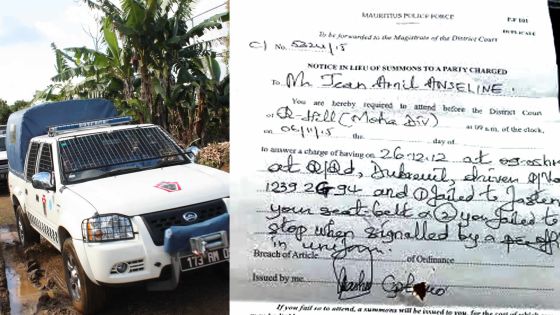 MAURITIUS POLICE FORCE
P.F 101
DUPLICATE
To be forwarded to the Magistrate of the District Court
C) No. 5324/15
NOTICE IN LIEU OF SUMMONS TO A PARTY CHARGED
To Mr Jean Anil ANSELINE.
You are hereby required to attend before the District Court
of R-Hill (Moka Div) at 09 a.m. of the clock,
on 06/11/15 the day of
In answer a charge of having on 26.12.12 at
at Dubreuil, driven
1239 and failed to fasten
your seat-belt (2) you failed to
stop when signalled by a
in uniform.
Breach of Article of Ordinance
Issued by me
If you fail so to attend, a summons will be issued to you, for the cost of which
173 RM